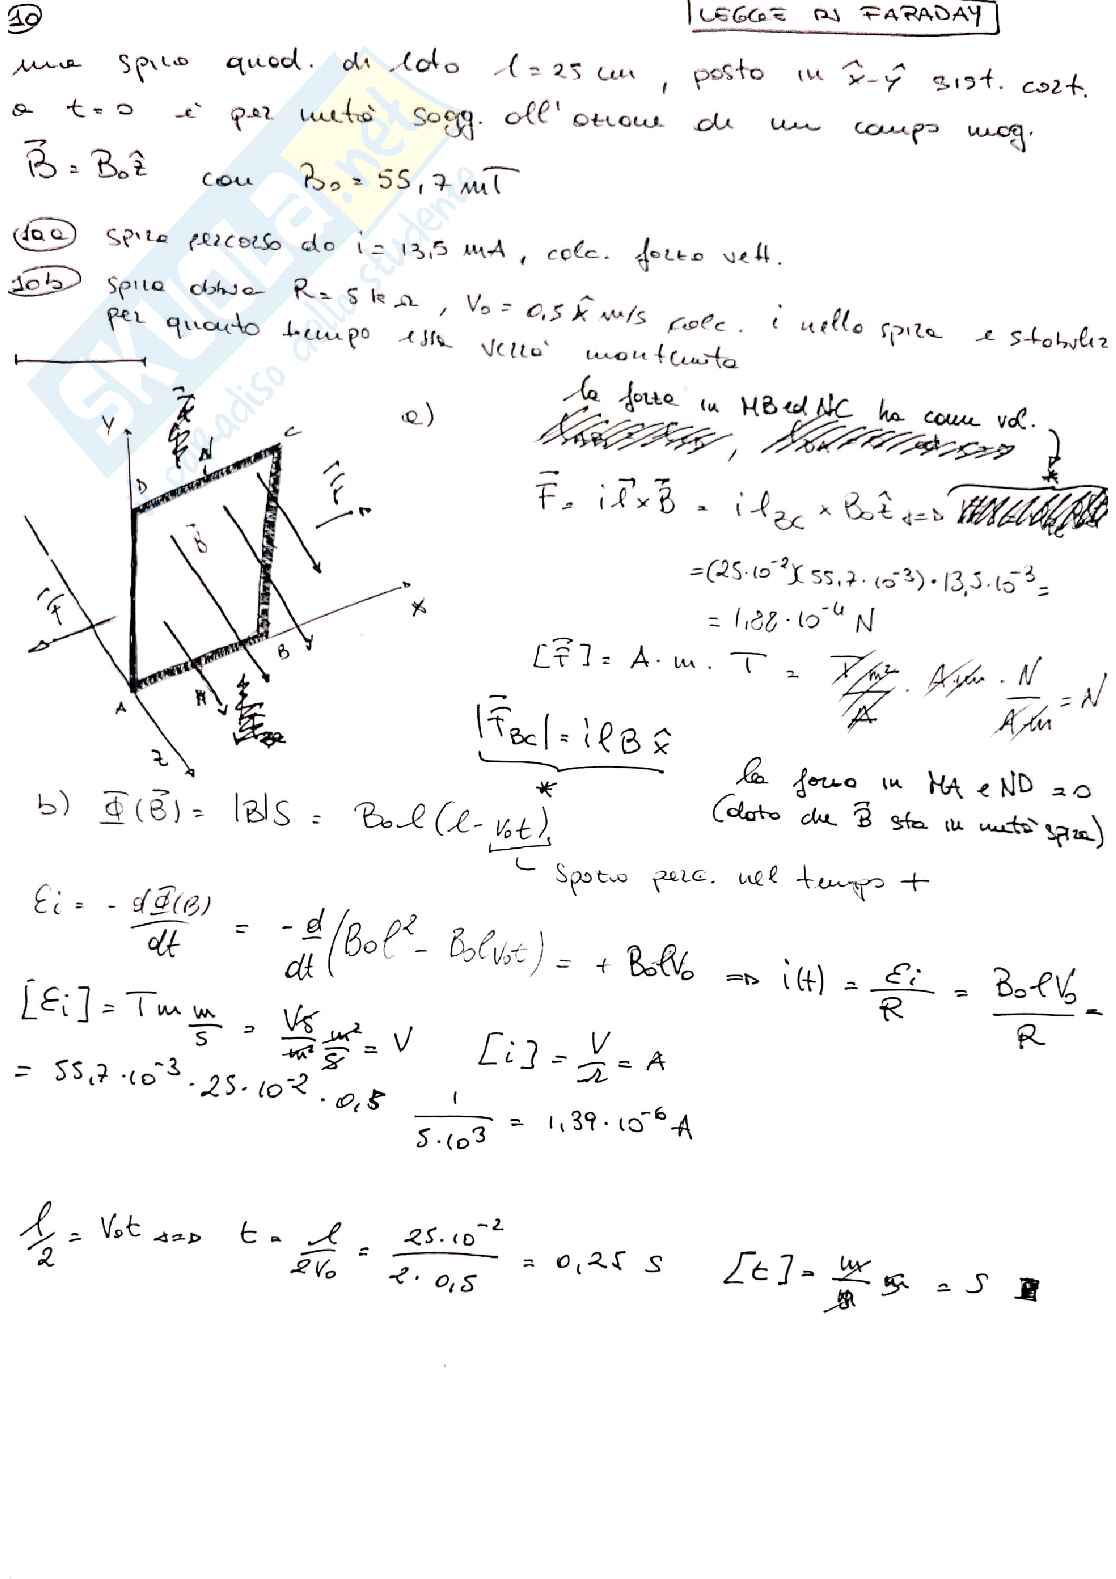 10
LEGGE DI FARADAY
una spira quad. di lato l = 25 cm, posta in x̂-ŷ sist. cart.
a t=0 è per metà sogg. all'azione di un campo mag.
B⃗ = B₀ẑ con B₀ = 55,7 mT
10a spira percorsa da i = 13,5 mA, calc. forza vett.
10b spira abbia R = 5 kΩ, V₀ = 0,5 x̂ m/s calc. i nella spira e stabilire
per quanto tempo essa verrà mantenuta
SKUOLA.net
paradiso dello studente
a)
la forza in MB ed NC ha come val.
Y
N
C
D
B⃗
F⃗
F⃗
X
B
M
A
Z
F⃗ = i l⃗ × B⃗ = i l_BC × B₀ẑ ⇔
*
= (25·10⁻²)(55,7·10⁻³)·13,5·10⁻³ =
= 1,88·10⁻⁴ N
[F⃗] = A·m·T = A·m · N/(A·m) = N
|F⃗_BC| = i l B x̂
*
la forza in MA e ND = 0
(dato che B⃗ sta in metà spira)
b) Φ(B⃗) = |B|S = B₀l(l - v₀t)
spazio perc. nel tempo t
Ei = - dΦ(B)/dt = - d/dt (B₀l² - B₀lv₀t) = + B₀lV₀ ⇒ i(t) = Ei/R = B₀lV₀/R =
[Ei] = T m m/s = Vs/m² m²/s = V [i] = V/Ω = A
= 55,7·10⁻³ · 25·10⁻² · 0,5 1/(5·10³) = 1,39·10⁻⁶ A
l/2 = V₀t ⇔ t = l/2V₀ = 25·10⁻²/(2·0,5) = 0,25 s [t] = m/m s = S